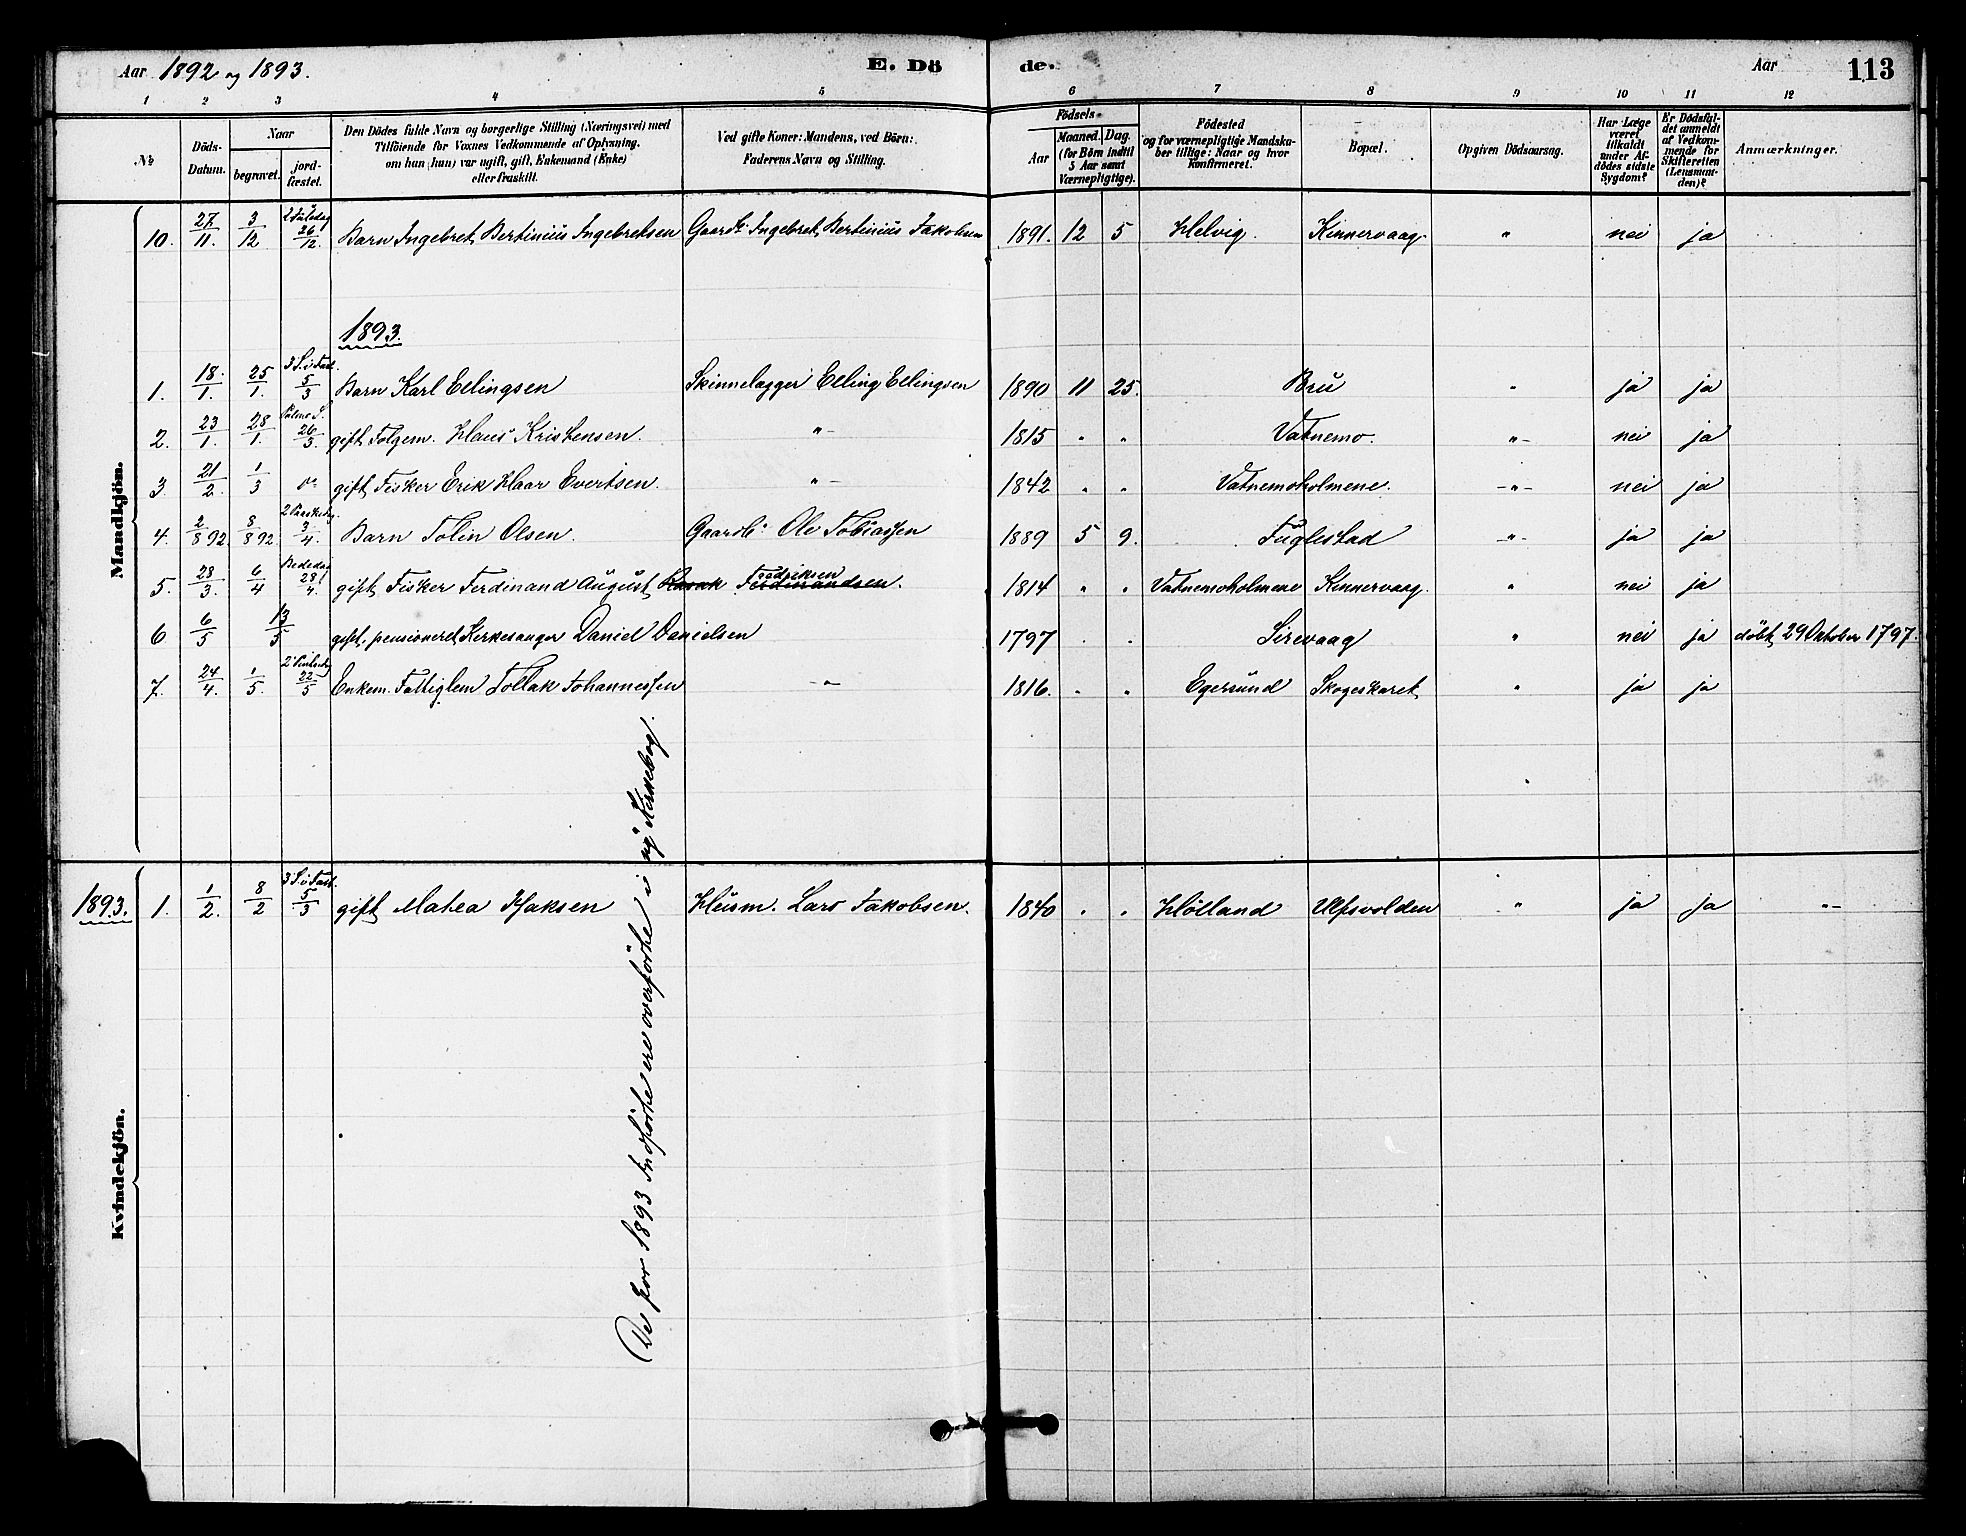 Aar 1892 og 1893. E. Dö de. Aar 113
1 2 3 4 5 6 7 8 9 10 11 12
No
Döds-Datum.
Naar begravet. jord-fæstet.
Den Dödes fulde Navn og borgerlige Stilling (Næringsvei) med Tilföiende for Voxnes Vedkommende af Oplysning, om han (hun) var ugift, gift, Enkemand (Enke) eller fraskilt.
Ved gifte Koner: Mandens, ved Börn: Faderens Navn og Stilling.
Födsels-
Aar
Maaned. Dag.
(for Börn indtil 5 Aar samt Værnepligtige).
Födested og for værnepligtige Mandskaber tillige: Naar og hvor Konfirmeret.
Bopæl.
Opgiven Dödsaarsag.
Har Læge været tilkaldt under Afdödes sidste Sygdom?
Er Dödsfaldet anmeldt af Vedkommende for Skifteretten (Lensmanden)?
Anmærkninger.
Mandkjön.
10. 27/11. 3/12 2 Juledag 26/12. Barn Ingebret Bertinius Ingebretsen Gaardb. Ingebret Bertinius Jakobsen 1891. 12 5 Helvig. Kinnervaag. " nei ja
1893.
1. 18./1. 25/1. 3 S. i Fast. 5/3 Barn Karl Ellingsen Skinnelægger Elling Ellingsen 1890 11 25. Bru " ja ja
2. 23/1. 28/1. Palme S. 26/3. gift Folgem. Klaus Kristensen. " 1815 " " Vatnemo. " nei ja
3. 21/2. 1/3 gift Fisker Erik Klaar Evertsen. " 1842 " " Vatnemoholmene. " nei ja
4. 2/8 92. 8/8 92. 2 Paaskedag. 3/4. Barn Tolin Olsen. Gaardb. Ole Tobiassen 1889 5 9. Fuglestad " ja ja
5. 28/3. 6/4 Bededag 28/4. gift Fisker Ferdinand August Fredriksen Ferdinandsen. 1814 " " Vatnemoholmene Kinnervaag. " nei ja
6 6/5 13/5 gift, pensioneret Kirkesanger Daniel Danielsen 1797 " " Sirevaag " nei ja döbt 29 Oktober 1797.
7. 24/4. 1/5. 2 Pintsedag 22/5 Enkem. Fattiglem Tollak Johannessen " 1816. " " Egersund Skogeskaret " ja ja
De for 1893 Indförte ere overförte i ny Kirkebog.
Kvindekjön.
1893. 1. 1/2. 8/2 3 S. i Fast. 5/3 gift Mathea Isaksen Husm. Lars Jakobsen. 1840 " " Hölland Ulfsvolden " ja ja "